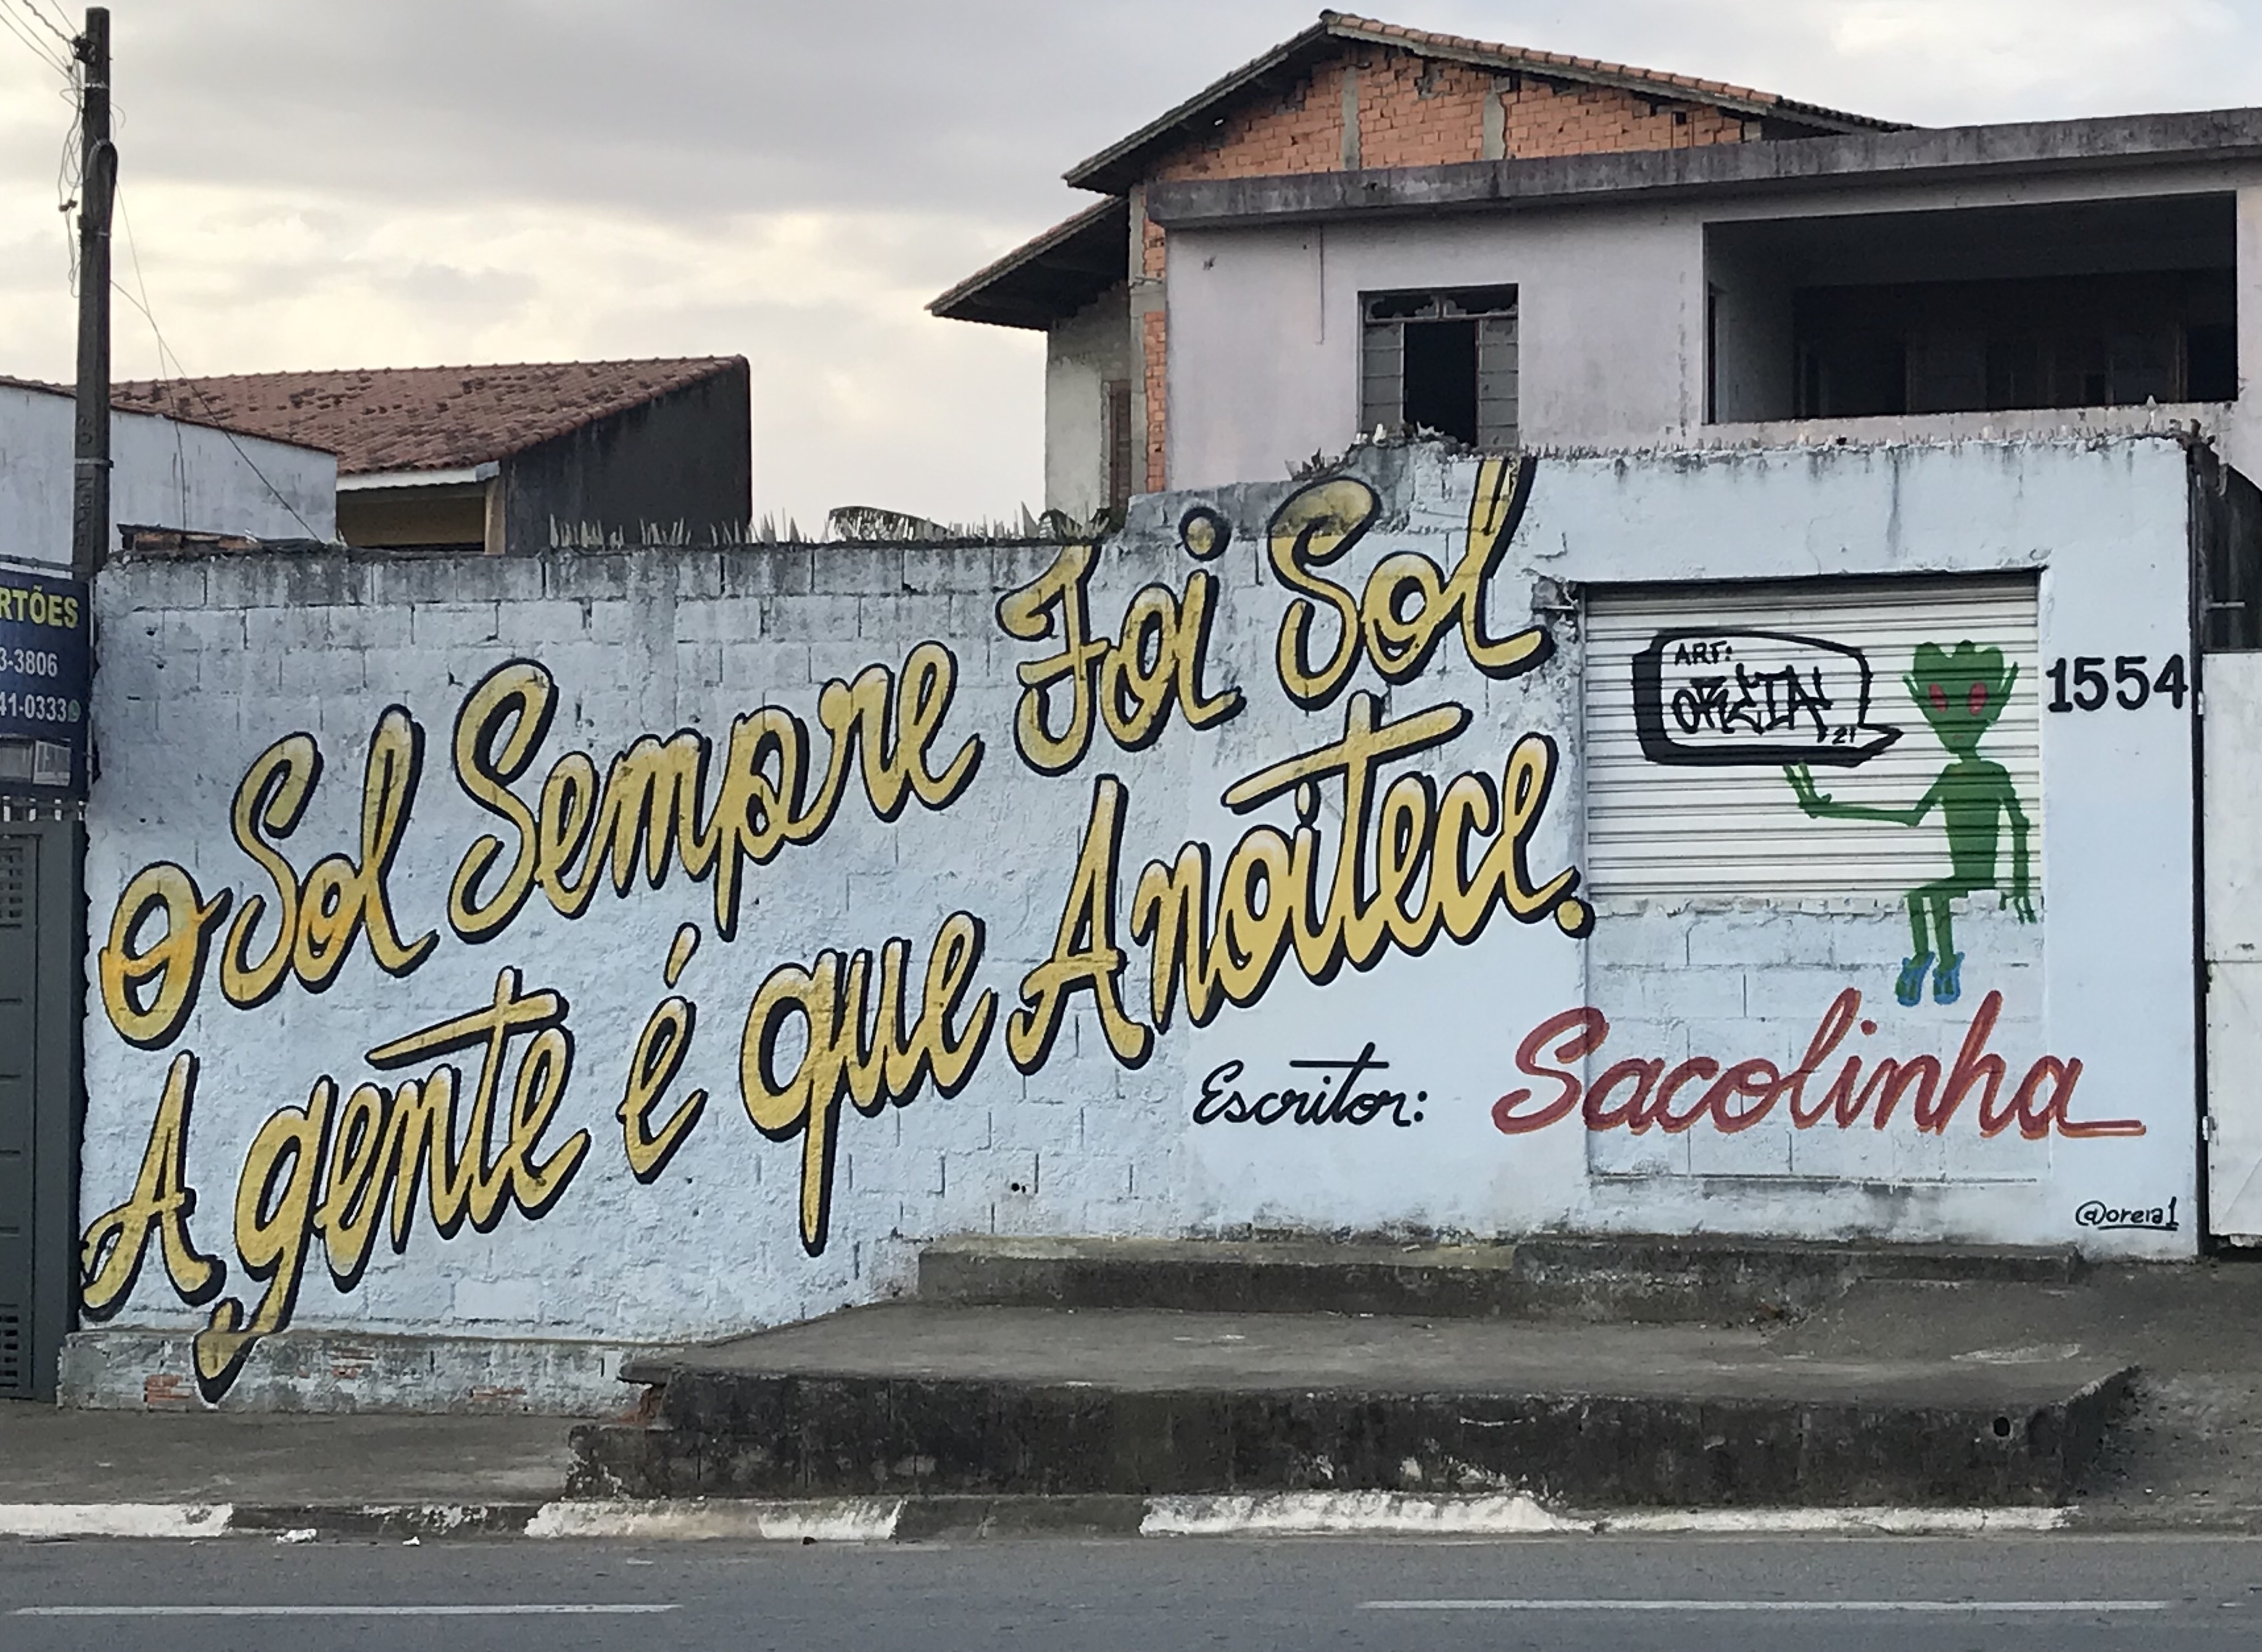 O Sol Sempre Foi Sol
A gente é que Anoitece.
Escritor: Sacolinha
ART:
OREIA
21
1554
@oreia1
RTÕES
3-3806
41-0333